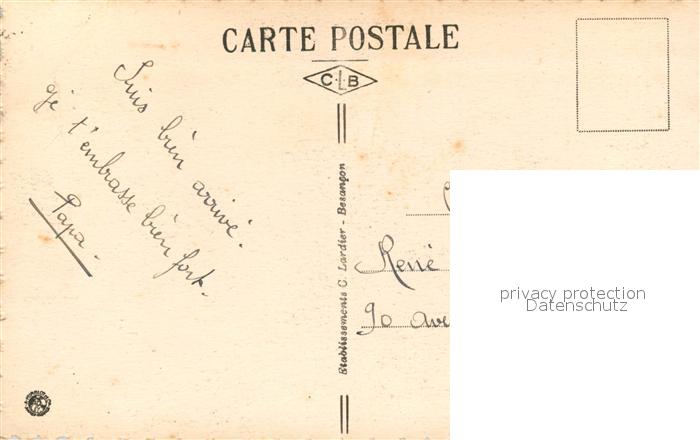 CARTE POSTALE
C.L.B
Suis bien arrivé.
je t'embrasse bien fort.
Papa.
Etablissements C. Lardier - Besançon
René
90 Ave
privacy protection
Datenschutz